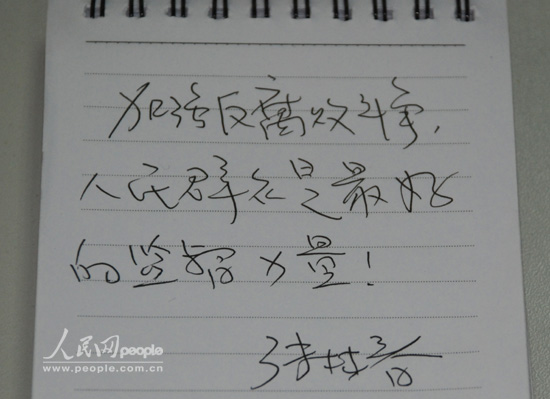 加强反腐败斗争，
人民群众是最好
的监督力量！
3/10
人民网 people
www.people.com.cn